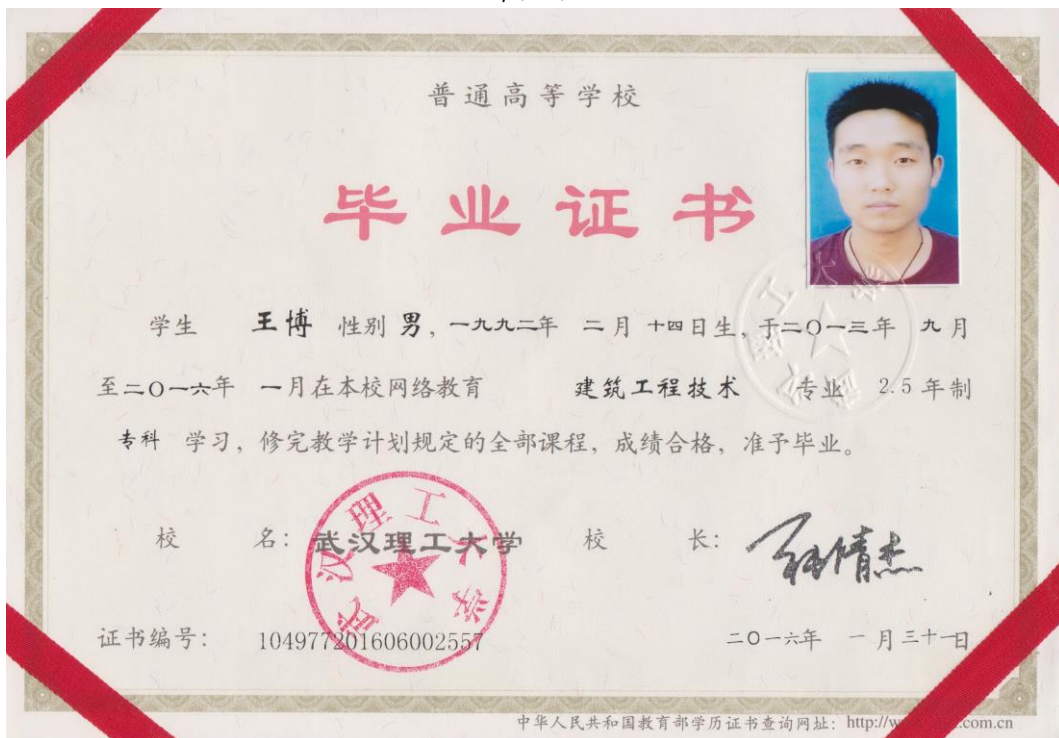 普通高等学校
毕业证书
学生 王博 性别 男，一九九二年 二月 十四日生，于二〇一三年 九月
至二〇一六年 一月在本校网络教育 建筑工程技术 专业 2.5 年制
专科 学习，修完教学计划规定的全部课程，成绩合格，准予毕业。
校 名：武汉理工大学 校 长：
武汉理工大学
证书编号： 104977201606002557 二〇一六年 一月三十一日
中华人民共和国教育部学历证书查询网址：http://w .com.cn